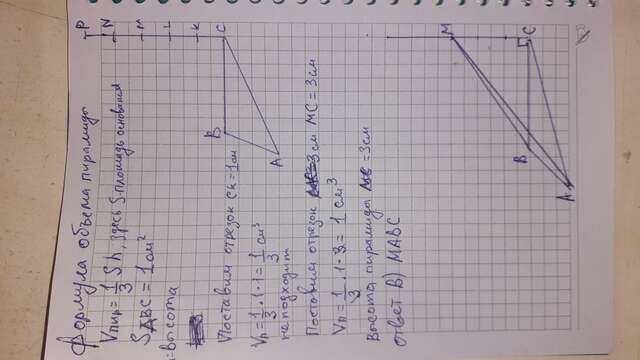 Формула объема пирамиды
Vпир = 1/3 Sh, здесь S-площадь основания
SABC = 1см²
h=высота
Поставим отрезок CK = 1см
Vп = 1/3 · 1 · 1 = 1/3 см³
не подходит
Поставим отрезок MC = 3см
Vп = 1/3 · 1 · 3 = 1 см³
Высота пирамиды MC = 3см
ответ В) MABC
P N M L K C
B
A
M C
B
A